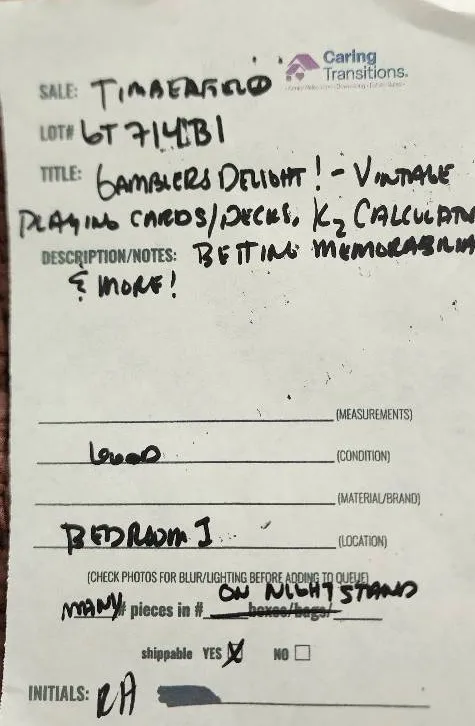 Caring
Transitions.
SALE: TIMBERFIELD
LOT# 6T714B1
TITLE: GAMBLERS DELIGHT! - VINTAGE
PLAYING CARDS/DECKS, K2 CALCULATOR
DESCRIPTION/NOTES: BETTING MEMORABILIA
& MORE!
(MEASUREMENTS)
GOOD (CONDITION)
(MATERIAL/BRAND)
BEDROOM 1 (LOCATION)
(CHECK PHOTOS FOR BLUR/LIGHTING BEFORE ADDING TO QUEUE)
ON NIGHTSTAND
MANY # pieces in # boxes/bags/
shippable YES X NO
INITIALS: RA